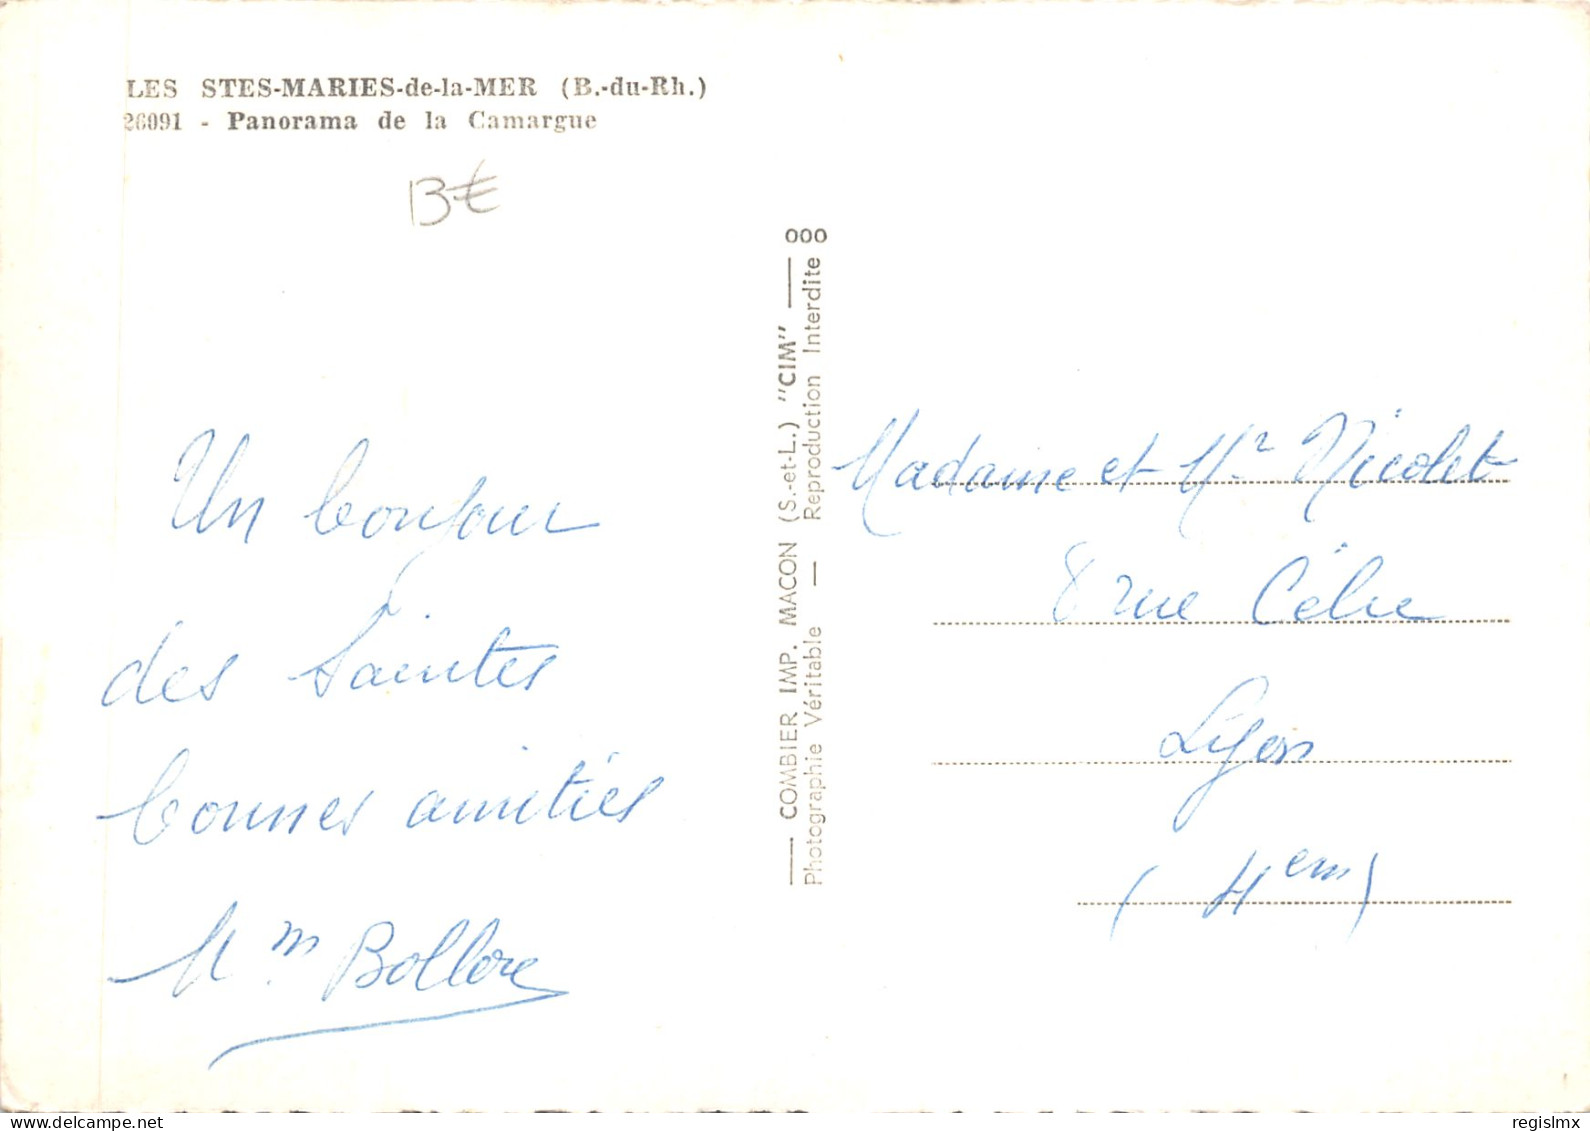 LES STES-MARIES-de-la-MER (B.-du-Rh.)
26091 - Panorama de la Camargue
13€
Un bonjour
des Saintes
bonnes amitiés
Mm. Bollore
COMBIER IMP. MACON (S.-et-L.) "CIM"
Photographie Véritable — Reproduction Interdite
000
Madame et Mr Nicolet
8 rue Célie
Lyon
(4em)
regislmx
delcampe.net